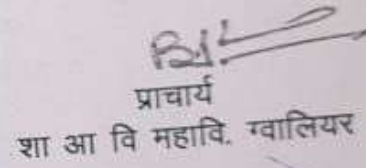 प्राचार्य
शा आ वि महावि. ग्वालियर